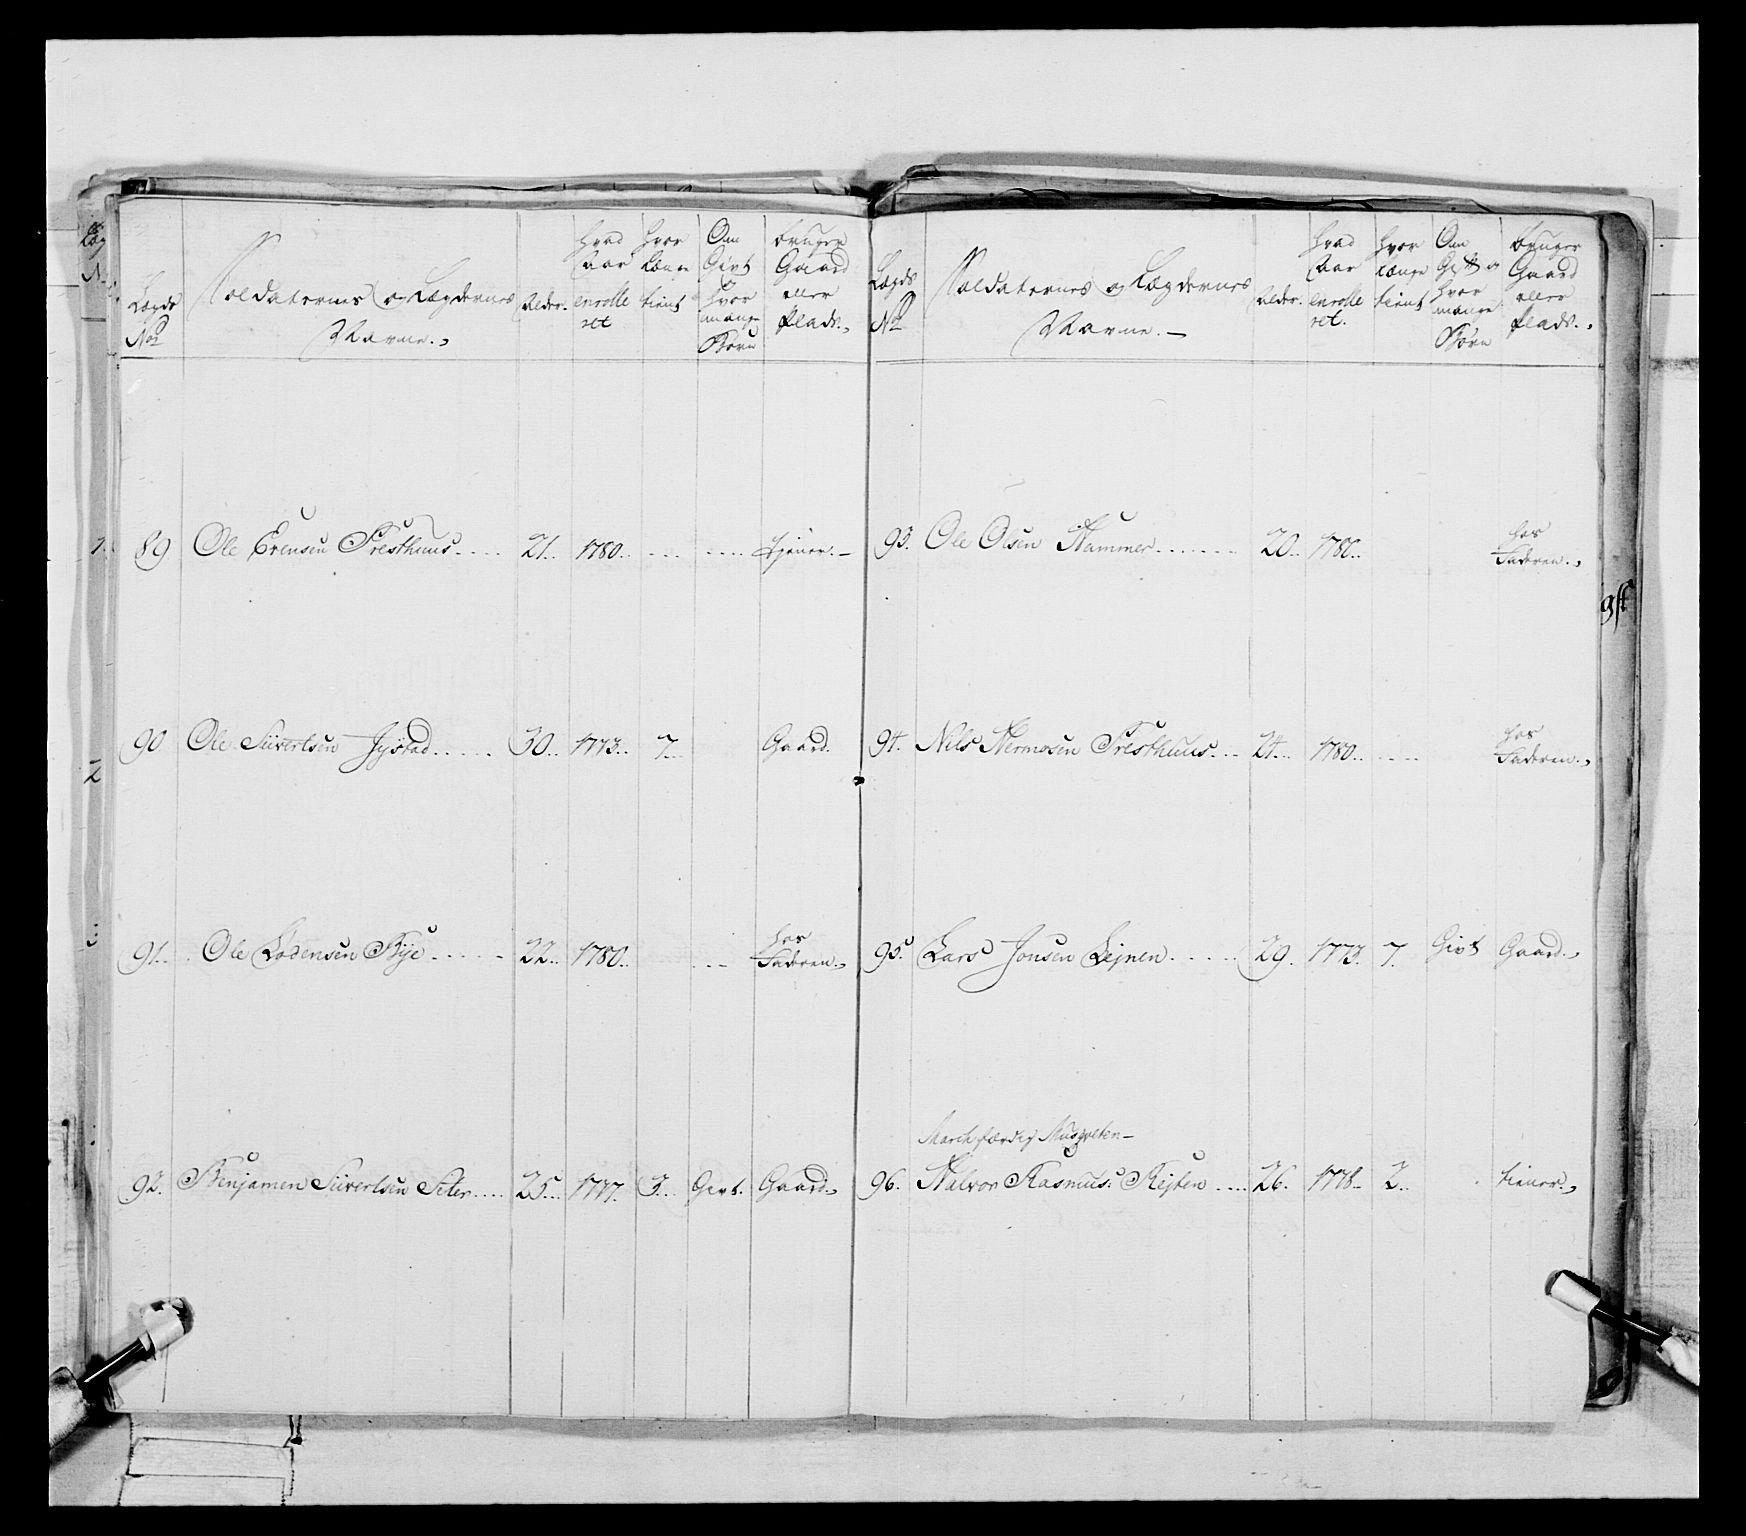 Lægds No
Soldaternes og Lægdernes Navne.
Alder.
hvad Aar enrolleret
hvor længe tient
Om Givt hvor mange Børn
bruger Gaard eller Plads.
89 Ole Evensen Presthuus 21. 1780. tjener.
90 Ole Siivertsen Jystad 30. 1773. 7. Gaard.
91. Ole Lodensen Bye 22. 1780. hos Faderen.
92. Benjamen Siivertsen Seter 25. 1777. 3. Givt. Gaard.
Lægds No
Soldaternes og Lægdernes Navne.
Alder.
hvad Aar enrolleret.
hvor længe tient
Om Gift og hvor mange Børn
bruger Gaard eller Plads.
93. Ole Olsen Hammer 20. 1780. hos Faderen.
94. Nils Hermosen Presthuus 24. 1780. hos Faderen.
95. Lars Jonsen Lejnen 29. 1773. 7. Givt Gaard.
March færdig Musqveten
96. Halvor Rasmus: Rejten 26. 1778. 2. tiener.